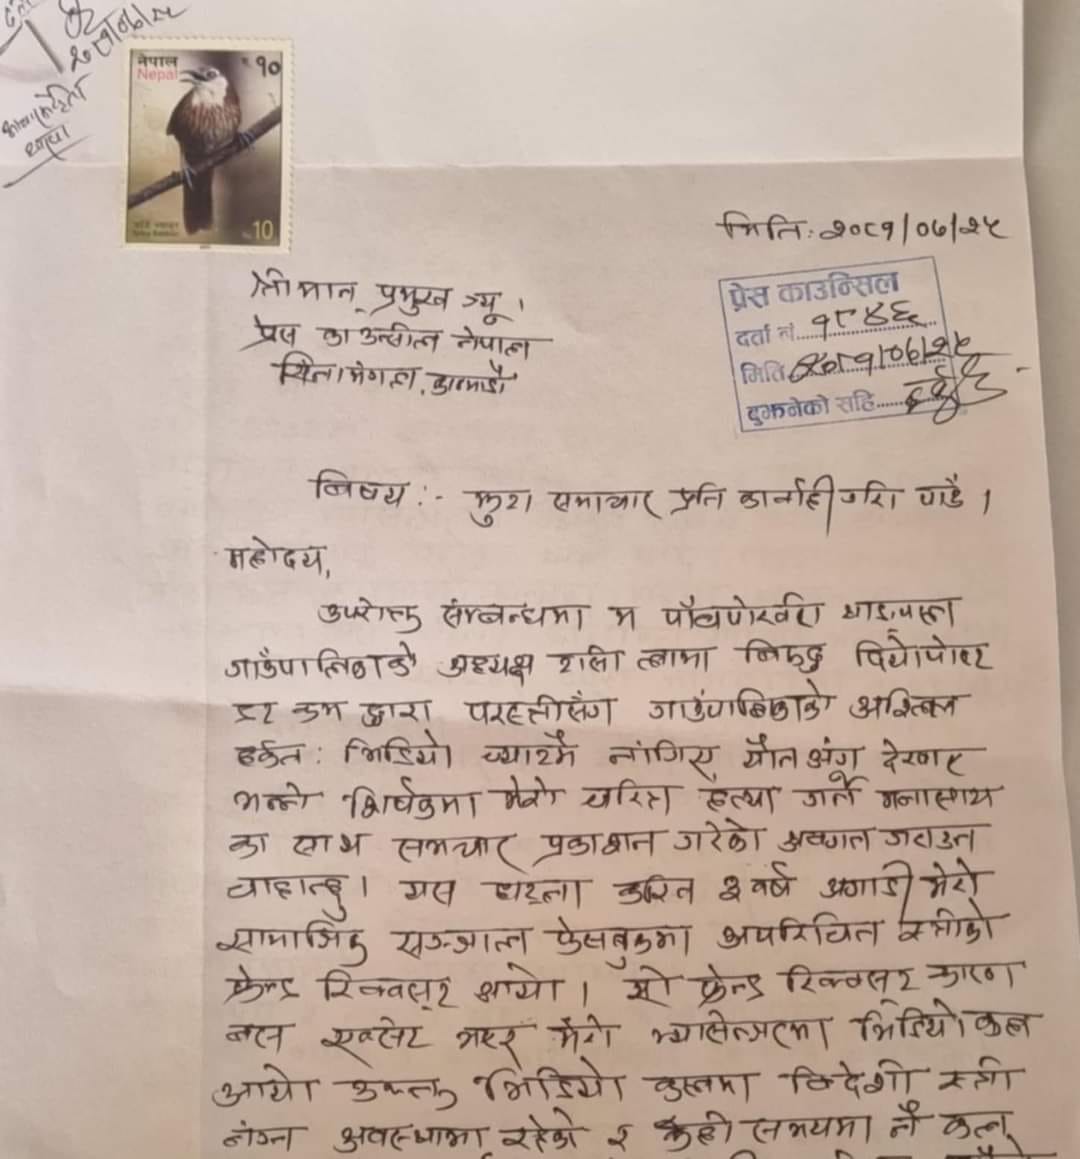 २०८१/०६/२५
नेपाल
Nepal
१०
10
मिति: २०८१/०६/२५
श्रीमान् प्रमुख ज्यू ।
प्रेस काउन्सील नेपाल
सिनामंगल, काठमाडौं
प्रेस काउन्सिल
दर्ता नं. १८४६
मिति २०८१/०६/२५
बुझ्नेको सहि
बिषय :- झुटा समाचार प्रति कार्वाही गरि पाउँ ।
महोदय,
उपरोक्त सम्बन्धमा म पाँचपोखरी थाङपाल
गाउँपालिकाको अध्यक्ष टासी लामा बिरुद्ध
डट कम द्वारा परस्त्रीसँग गाउँपालिकाको
हर्कत : भिडियो च्याटमै नांगिए यौन अंग देखाए
भन्ने शिर्षकमा मेरो चरित्र हत्या गर्ने मनासाय
का साथ समाचार प्रकाशन गरेको अवगत गराउन
चाहान्छु । यस घटना करिव ३ वर्ष अगाडी मेरो
सामाजिक सञ्जाल फेसबुकमा अपरिचित स्त्रीको
फ्रेन्ड रिक्वस्ट आयो । सो फ्रेन्ड रिक्वस्ट कारण
बस एक्सेट भएर मेरो म्यासेन्जरमा भिडियो कल
आयो उक्त भिडियो कलमा विदेशी स्त्री
नंग्न अवस्थामा रहेको र केही समयमा नै कल